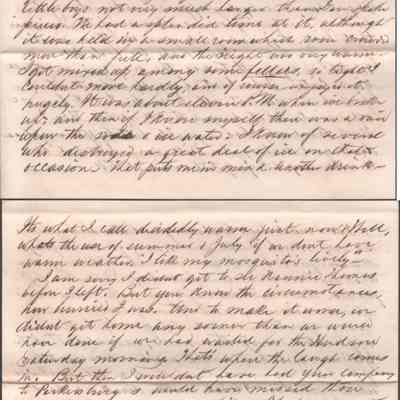 little boys not very much larger than
We had a splendid time at it, although
it was held in a small room which was crowded
more than full, and the night was very warm.
I got mixed up among some fellers, so tight I
couldn't move hardly, and of course enjoyed it
hugely. It was about eleven o'clk when we broke
up: and then if I know myself there was a raid
upon the soda & ice water: I know of several
who destroyed a great deal of ice on that
occasion. That puts me in mind another drink
It's what I call decidedly warm just now. Well,
what's the use of summer & July if we don't have
warm weather, I tell my mosquito's lively
I am sorry I didn't get to see Nannie Thomas
before I left. But you know the circumstances,
how hurried I was. And to make it worse, we
didn't get home any sooner than we would
have done if we had waited for the Hudson
Saturday morning. That's where the laugh comes
in. But then I wouldn't have had your company
to Parkersburg & would have missed those